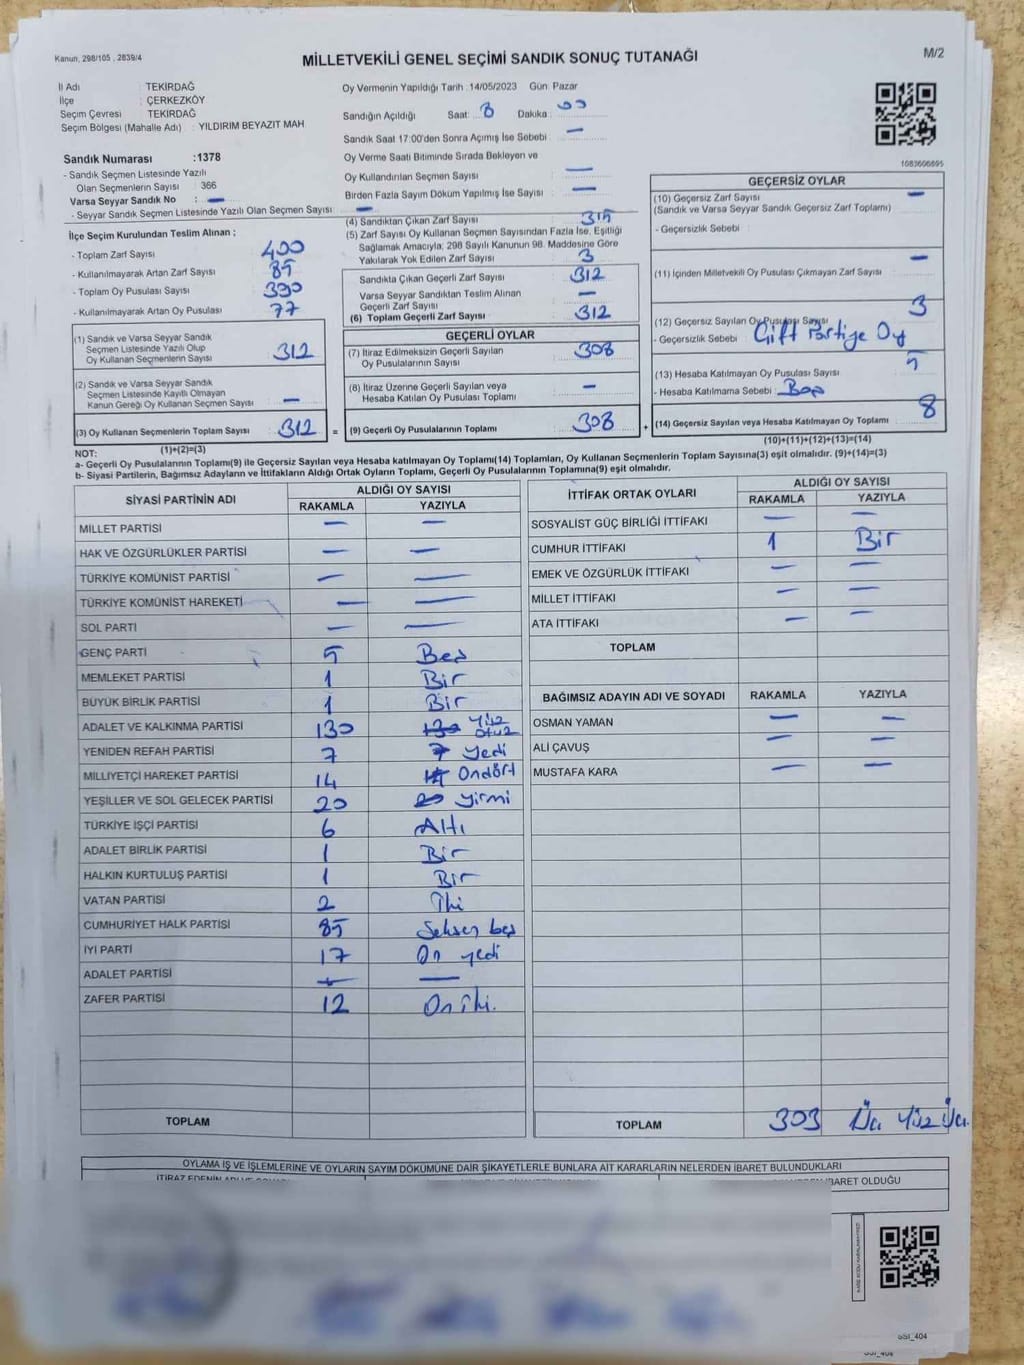 Kanun, 298/105 , 2839/4
MİLLETVEKİLİ GENEL SEÇİMİ SANDIK SONUÇ TUTANAĞI
M/2
İl Adı : TEKİRDAĞ
İlçe : ÇERKEZKÖY
Seçim Çevresi : TEKİRDAĞ
Seçim Bölgesi (Mahalle Adı) : YILDIRIM BEYAZIT MAH
Sandık Numarası :1378
- Sandık Seçmen Listesinde Yazılı
Olan Seçmenlerin Sayısı : 366
Varsa Seyyar Sandık No : —
- Seyyar Sandık Seçmen Listesinde Yazılı Olan Seçmen Sayısı : —
İlçe Seçim Kurulundan Teslim Alınan ;
- Toplam Zarf Sayısı 400
- Kullanılmayarak Artan Zarf Sayısı 85
- Toplam Oy Pusulası Sayısı 390
- Kullanılmayarak Artan Oy Pusulası 77
(1) Sandık ve Varsa Seyyar Sandık
Seçmen Listesinde Yazılı Olup
Oy Kullanan Seçmenlerin Sayısı 312
(2) Sandık ve Varsa Seyyar Sandık
Seçmen Listesinde Kayıtlı Olmayan
Kanun Gereği Oy Kullanan Seçmen Sayısı —
(3) Oy Kullanan Seçmenlerin Toplam Sayısı 312
(1)+(2)=(3)
Oy Vermenin Yapıldığı Tarih :14/05/2023 Gün: Pazar
Sandığın Açıldığı Saat: 8 Dakika: 00
Sandık Saat 17:00'den Sonra Açımış İse Sebebi : —
Oy Verme Saati Bitiminde Sırada Bekleyen ve
Oy Kullandırılan Seçmen Sayısı —
Birden Fazla Sayım Döküm Yapılmış İse Sayısı —
(4) Sandıktan Çıkan Zarf Sayısı 315
(5) Zarf Sayısı Oy Kullanan Seçmen Sayısından Fazla İse, Eşitliği
Sağlamak Amacıyla; 298 Sayılı Kanunun 98. Maddesine Göre
Yakılarak Yok Edilen Zarf Sayısı 3
Sandıkta Çıkan Geçerli Zarf Sayısı 312
Varsa Seyyar Sandıktan Teslim Alınan
Geçerli Zarf Sayısı —
(6) Toplam Geçerli Zarf Sayısı 312
GEÇERLİ OYLAR
(7) İtiraz Edilmeksizin Geçerli Sayılan
Oy Pusulalarının Sayısı 308
(8) İtiraz Üzerine Geçerli Sayılan veya
Hesaba Katılan Oy Pusulası Toplamı —
= (9) Geçerli Oy Pusulalarının Toplamı 308 +
1083606695
GEÇERSİZ OYLAR
(10) Geçersiz Zarf Sayısı —
(Sandık ve Varsa Seyyar Sandık Geçersiz Zarf Toplamı)
- Geçersizlik Sebebi :
(11) İçinden Milletvekili Oy Pusulası Çıkmayan Zarf Sayısı —
(12) Geçersiz Sayılan Oy Pusulası Sayısı 3
- Geçersizlik Sebebi Çift Partiye Oy
(13) Hesaba Katılmayan Oy Pusulası Sayısı 5
- Hesaba Katılmama Sebebi : Boş
(14) Geçersiz Sayılan veya Hesaba Katılmayan Oy Toplamı 8
(10)+(11)+(12)+(13)=(14)
NOT:
a- Geçerli Oy Pusulalarının Toplamı(9) ile Geçersiz Sayılan veya Hesaba katılmayan Oy Toplamı(14) Toplamları, Oy Kullanan Seçmenlerin Toplam Sayısına(3) eşit olmalıdır. (9)+(14)=(3)
b- Siyasi Partilerin, Bağımsız Adayların ve İttifakların Aldığı Ortak Oyların Toplamı, Geçerli Oy Pusulalarının Toplamına(9) eşit olmalıdır.
SİYASİ PARTİNİN ADI ALDIĞI OY SAYISI
RAKAMLA YAZIYLA
MİLLET PARTİSİ — —
HAK VE ÖZGÜRLÜKLER PARTİSİ — —
TÜRKİYE KOMÜNİST PARTİSİ — —
TÜRKİYE KOMÜNİST HAREKETİ — —
SOL PARTİ — —
GENÇ PARTİ 5 Beş
MEMLEKET PARTİSİ 1 Bir
BÜYÜK BİRLİK PARTİSİ 1 Bir
ADALET VE KALKINMA PARTİSİ 130 130 Yüz otuz
YENİDEN REFAH PARTİSİ 7 7 yedi
MİLLİYETÇİ HAREKET PARTİSİ 14 14 Ondört
YEŞİLLER VE SOL GELECEK PARTİSİ 20 20 yirmi
TÜRKİYE İŞÇİ PARTİSİ 6 Altı
ADALET BİRLİK PARTİSİ 1 Bir
HALKIN KURTULUŞ PARTİSİ 1 Bir
VATAN PARTİSİ 2 İki
CUMHURİYET HALK PARTİSİ 85 Seksen beş
İYİ PARTİ 17 On yedi
ADALET PARTİSİ — —
ZAFER PARTİSİ 12 On iki.
TOPLAM
İTTİFAK ORTAK OYLARI ALDIĞI OY SAYISI
RAKAMLA YAZIYLA
SOSYALİST GÜÇ BİRLİĞİ İTTİFAKI — —
CUMHUR İTTİFAKI 1 Bir
EMEK VE ÖZGÜRLÜK İTTİFAKI — —
MİLLET İTTİFAKI — —
ATA İTTİFAKI — —
TOPLAM
BAĞIMSIZ ADAYIN ADI VE SOYADI RAKAMLA YAZIYLA
OSMAN YAMAN — —
ALİ ÇAVUŞ — —
MUSTAFA KARA — —
TOPLAM 303 Üç Yüz Üç.
OYLAMA İŞ VE İŞLEMLERİNE VE OYLARIN SAYIM DÖKÜMÜNE DAİR ŞİKAYETLERLE BUNLARA AİT KARARLARIN NELERDEN İBARET BULUNDUKLARI
İTİRAZ EDENİN ADI
İBARET OLDUĞU
SSİ_404